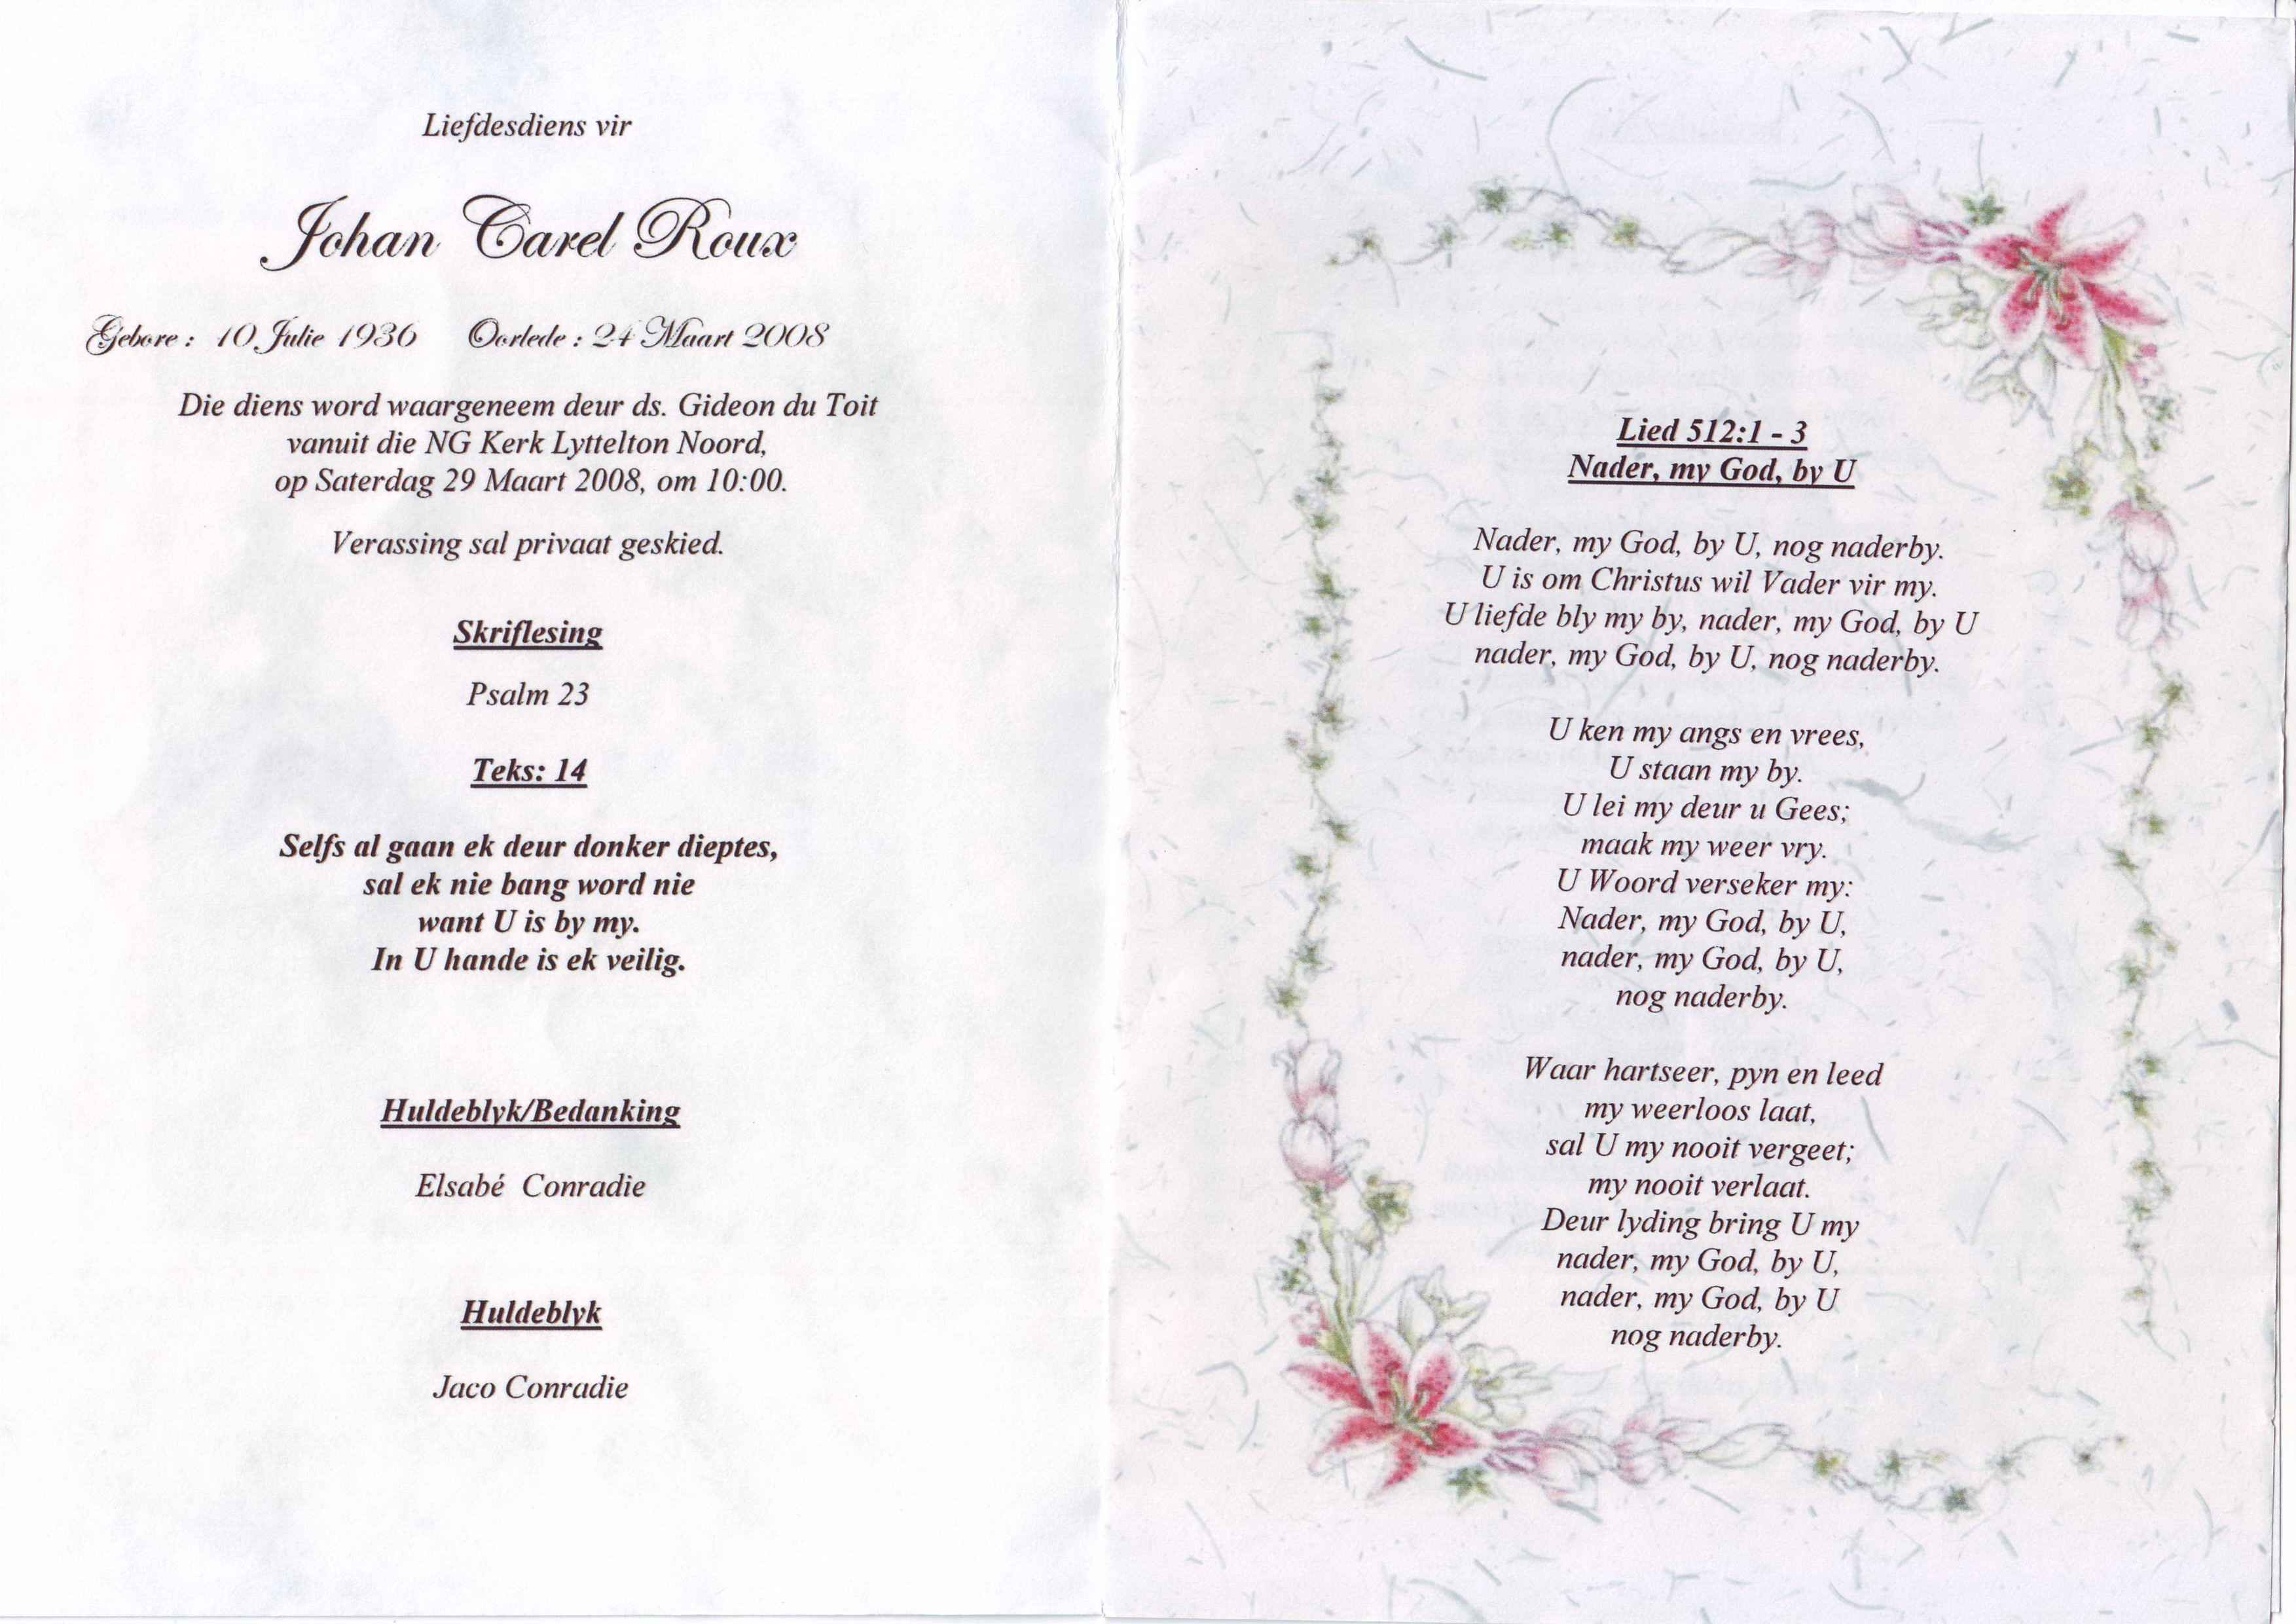 Liefdesdiens vir
Johan Carel Roux
Gebore : 10 Julie 1936 Oorlede : 24 Maart 2008
Die diens word waargeneem deur ds. Gideon du Toit
vanuit die NG Kerk Lyttelton Noord,
op Saterdag 29 Maart 2008, om 10:00.
Verassing sal privaat geskied.
Skriflesing
Psalm 23
Teks: 14
Selfs al gaan ek deur donker dieptes,
sal ek nie bang word nie
want U is by my.
In U hande is ek veilig.
Huldeblyk/Bedanking
Elsabé Conradie
Huldeblyk
Jaco Conradie
Lied 512:1 - 3
Nader, my God, by U
Nader, my God, by U, nog naderby.
U is om Christus wil Vader vir my.
U liefde bly my by, nader, my God, by U
nader, my God, by U, nog naderby.
U ken my angs en vrees,
U staan my by.
U lei my deur u Gees;
maak my weer vry.
U Woord verseker my:
Nader, my God, by U,
nader, my God, by U,
nog naderby.
Waar hartseer, pyn en leed
my weerloos laat,
sal U my nooit vergeet;
my nooit verlaat.
Deur lyding bring U my
nader, my God, by U,
nader, my God, by U
nog naderby.